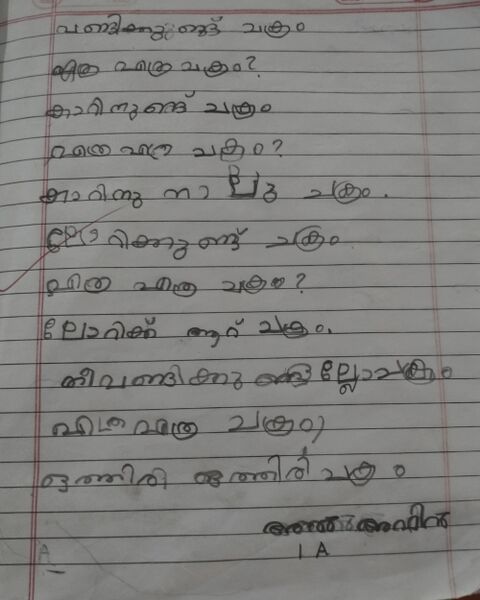 വണ്ടിക്കുമുണ്ട് ചക്രം
എത്ര എത്ര ചക്രം?
കാറിനുമുണ്ട് ചക്രം
എത്ര എത്ര ചക്രം?
കാറിനു നാലു ചക്രം.
ലോറിക്കുമുണ്ട് ചക്രം
എത്ര എത്ര ചക്രം?
ലോറിക്ക് ആറ് ചക്രം.
തീവണ്ടിക്കുമുണ്ടല്ലോ ചക്രം
എത്ര എത്ര ചക്രം)
ഒത്തിരി ഒത്തിരി ചക്രം
I A
A